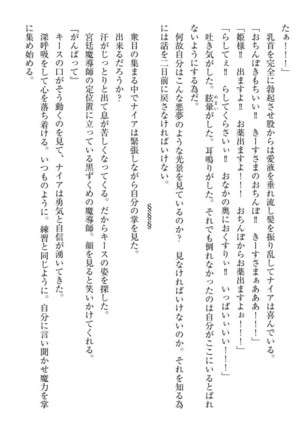 たぁ！！！」
　乳首を完全に勃起させ股からは愛液を垂れ流し髪を振り乱してナイアは喜んでいる。
「おちんぽきもちぃい‼　きーすさまのおちんぽ‼　きーすさまぁぁああ！！！」
「姫様‼　出ますよ‼　お薬出ますよ‼　おちんぽからお薬出ますよぉ！！！」
「らしてぇ‼　らしてくらさいぃ‼　おなかの奥におくすりぃ‼　いっぱいぃいい！！」
　吐き気がした。眩暈がした。耳鳴りがした。嘔吐しなかったのは自分がここにいるとばれ
ないようにする為だ。
　何故自分はこんな悪夢のような光景を見ているのか？　見なければいけないのか。それを知る為
には話を二日前に戻さなければいけない。
§§§§§
　衆目の集まる中でナイアは緊張しながら自分の掌を見た。
　出来るだろうか？
　汗がじっとりと出て息が苦しくなってくる。だからキースの姿を探した。
　宮廷魔導師の定位置に立っている黒ずくめの魔導師。顔を見ると笑いかけてくれる。
「がんばって」
　キースの口がそう動くのを見て、ナイアは勇気と自信が湧いてきた。
　深呼吸をして心を落ち着ける。いつものように。練習と同じように。自分に言い聞かせ魔力を掌
に集め始める。